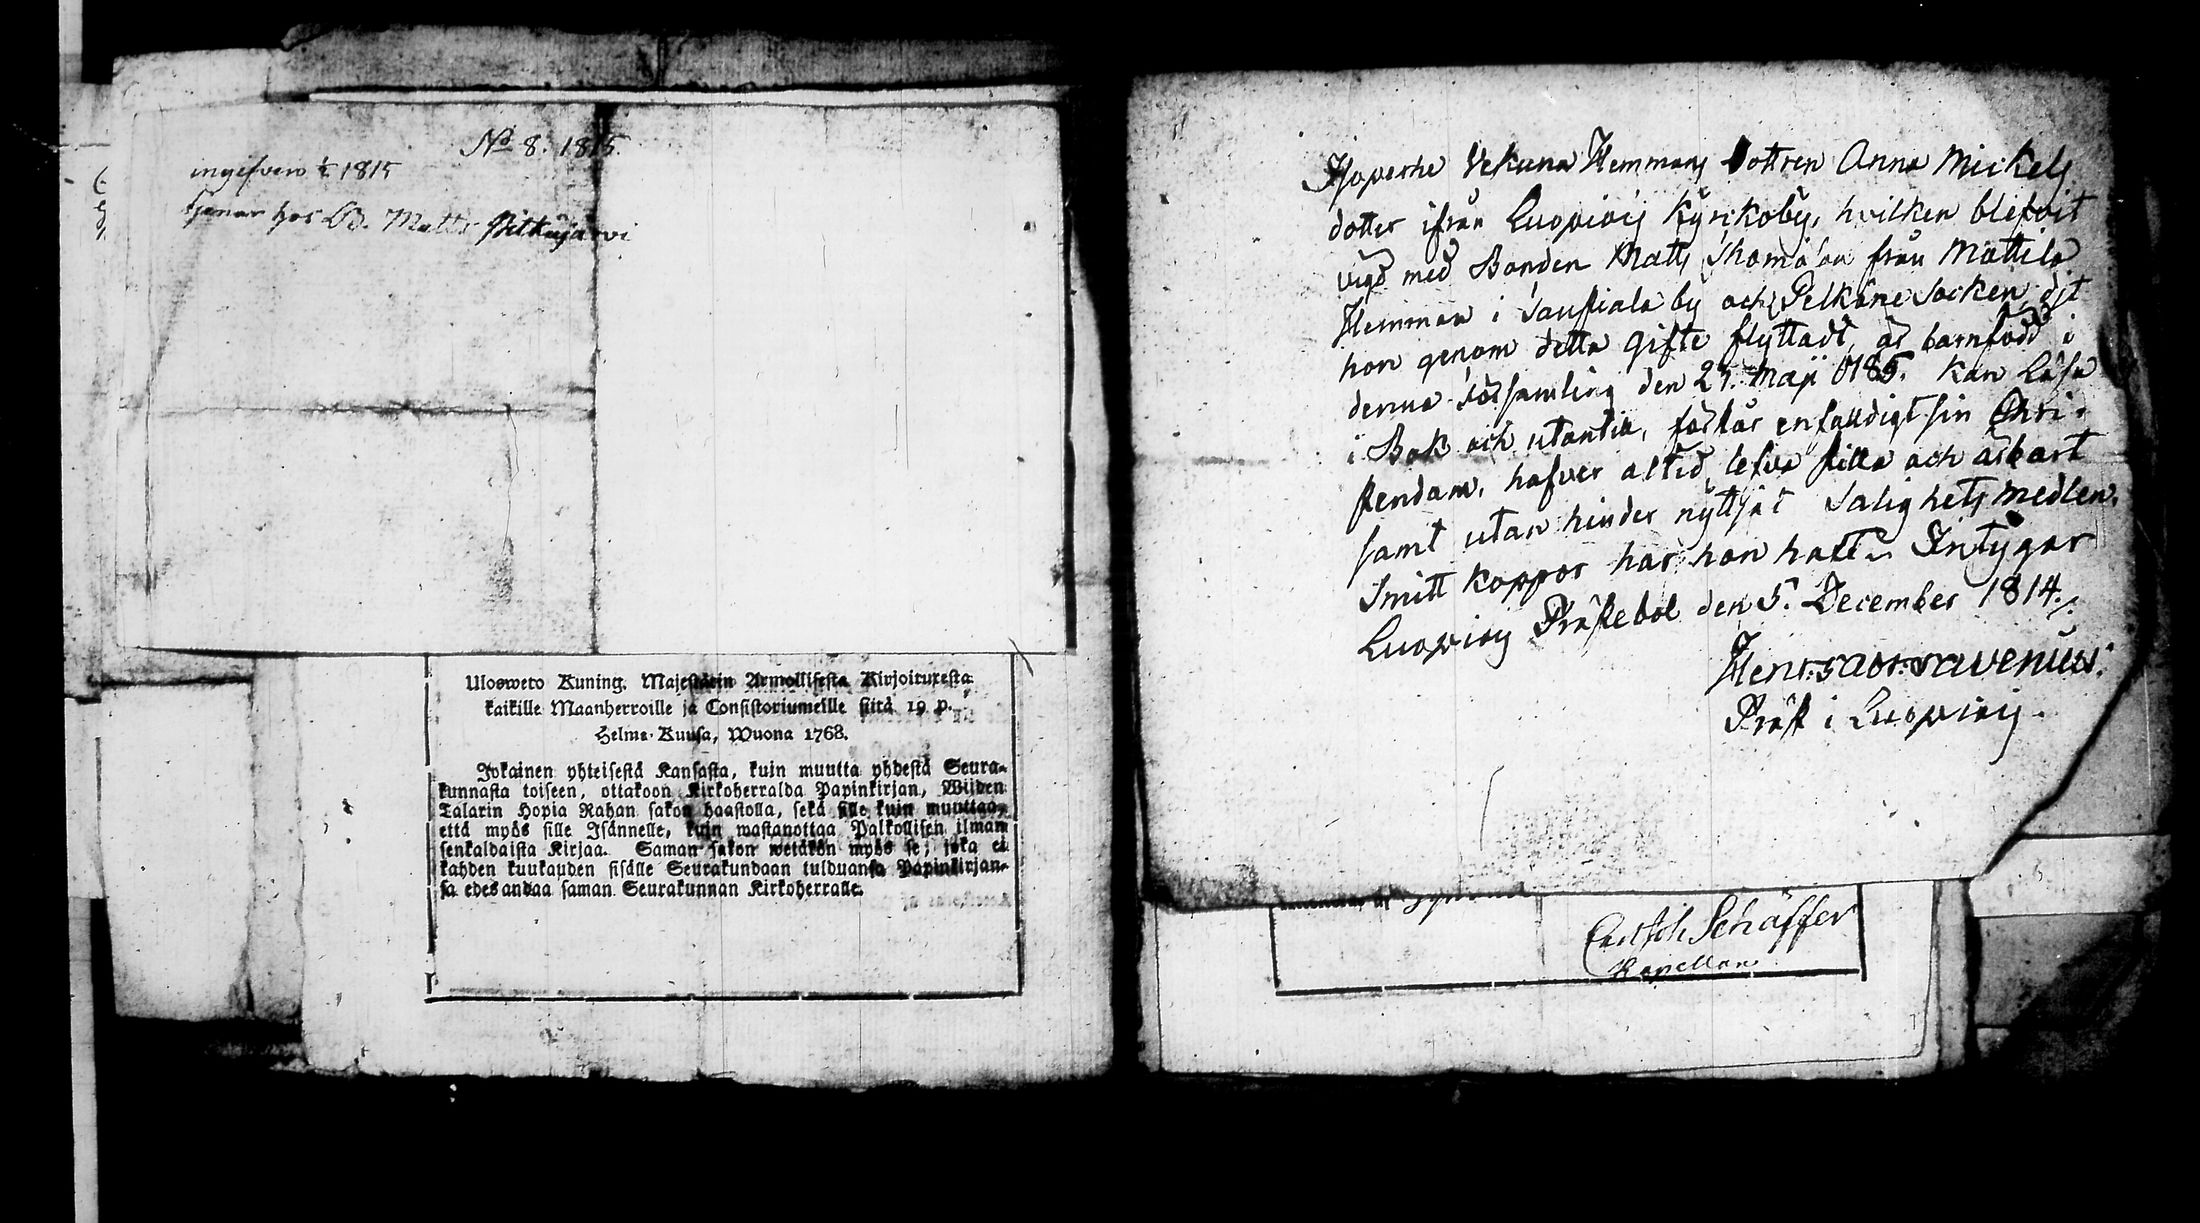 No 8. 1815.
ingifven 1/2 1815
tjenar hos Bd. Matts Pitkäjärvi
Ulosweto Kuning. Majestätin Armollisesta Kirjoituxesta
kaikille Maanherroille ja Consistoriumeille siitä 19 p.
Helme-Kuusa, Wuona 1768.
Jokainen yhteisestä Kansasta, kuin muutta yhdestä Seura-
kunnasta toiseen, ottakoon Kirkoherralda Papinkirjan, Wijden
Talarin Hopia Rahan sakon haastolla, sekä sille kuin muuttaa,
että myös sille Isännelle, kuin wastanottaa Palkollisen ilman
senkaldaista Kirjaa. Saman sakon wetäkön myös se, joka ei
kahden kuukauden sisälle Seurakundaan tulduansa Papinkirjan-
sa edes andaa saman Seurakunnan Kirkoherralle.
Hemmans Dottren Anna Mickels
dotter ifrån Luopioij Kyrikoby, hvilken blefvit
vigd med Bonden Matts Thomason från Mattila
Hemman i Sausiala by och Pelkäne Socken dit
hon genom detta gifte flyttadt, är barnfödd i
denna Församling den 27. Maji Kan Läsa
i Bok och utantill, förstår enfalldigt sin Chri-
stendom, hafver altid lefvat stilla och ärbart
samt utan hinder nyttjat Salighets medlen.
Smitt koppor har hon haft. Intygar
Luopioij Prästebol den 5. December 1814.
Henr:
Präst i Luopioij.
Schäffer
Kapellan